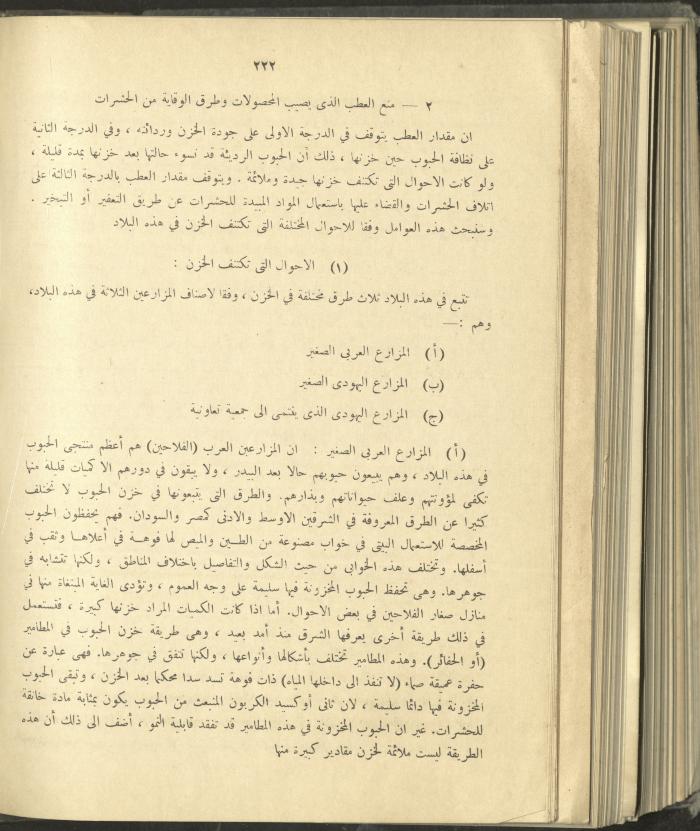 ٢٢٢
٢ — منع العطب الذى يصيب المحصولات وطرق الوقاية من الحشرات
ان مقدار العطب يتوقف في الدرجة الاولى على جودة الخزن وردائته ، وفي الدرجة الثانية
على نظافة الحبوب حين خزنها ، ذلك أن الحبوب الرديئة قد تسوء حالتها بعد خزنها بمدة قليلة ،
ولو كانت الاحوال التى تكتنف خزنها جيدة وملائمة . ويتوقف مقدار العطب بالدرجة الثالثة على
اتلاف الحشرات والقضاء عليها باستعمال المواد المبيدة للحشرات عن طريق التعفير أو التبخير .
وسنبحث هذه العوامل وفقا للاحوال المختلفة التى تكتنف الخزن في هذه البلاد
(١) الاحوال التى تكتنف الخزن :
تتبع في هذه البلاد ثلاث طرق مختلفة في الخزن ، وفقا لاصناف المزارعين الثلاثة في هذه البلاد،
وهم :—
(أ) المزارع العربى الصغير
(ب) المزارع اليهودى الصغير
(ج) المزارع اليهودى الذى ينتمى الى جمعية تعاونية
(أ) المزارع العربى الصغير : ان المزارعين العرب (الفلاحين) هم أعظم منتجى الحبوب
في هذه البلاد ، وهم يبيعون حبوبهم حالا بعد البيدر ، ولا يبقون في دورهم الا كميات قليلة منها
تكفى لمؤونتهم وعلف حيواناتهم وبذارهم. والطرق التى يتبعونها في خزن الحبوب لا تختلف
كثيرا عن الطرق المعروفة في الشرقين الاوسط والادنى كمصر والسودان. فهم يحفظون الحبوب
المخصصة للاستعمال البيتى في خواب مصنوعة من الطين والمبص لها فوهة في أعلاها وثقب في
أسفلها. وتختلف هذه الخوابى من حيث الشكل والتفاصيل باختلاف المناطق ، ولكنها تتشابه في
جوهرها. وهى تحفظ الحبوب المخزونة فيها سليمة على وجه العموم ، وتؤدى الغاية المبتغاة منها في
منازل صغار الفلاحين في بعض الاحوال. أما اذا كانت الكميات المراد خزنها كبيرة ، فتستعمل
في ذلك طريقة أخرى يعرفها الشرق منذ أمد بعيد ، وهى طريقة خزن الحبوب في المطامير
(أو الحفائر). وهذه المطامير تختلف بأشكالها وأنواعها ، ولكنها تتفق في جوهرها. فهى عبارة عن
حفرة عميقة صماء (لا تنفذ الى داخلها المياه) ذات فوهة تسد سدا محكما بعد الخزن ، وتبقى الحبوب
المخزونة فيها دائما سليمة ، لان ثانى أوكسيد الكربون المنبعث من الحبوب يكون بمثابة مادة خانقة
للحشرات. غير ان الحبوب المخزونة في هذه المطامير قد تفقد قابلية النمو ، أضف الى ذلك أن هذه
الطريقة ليست ملائمة لخزن مقادير كبيرة منها